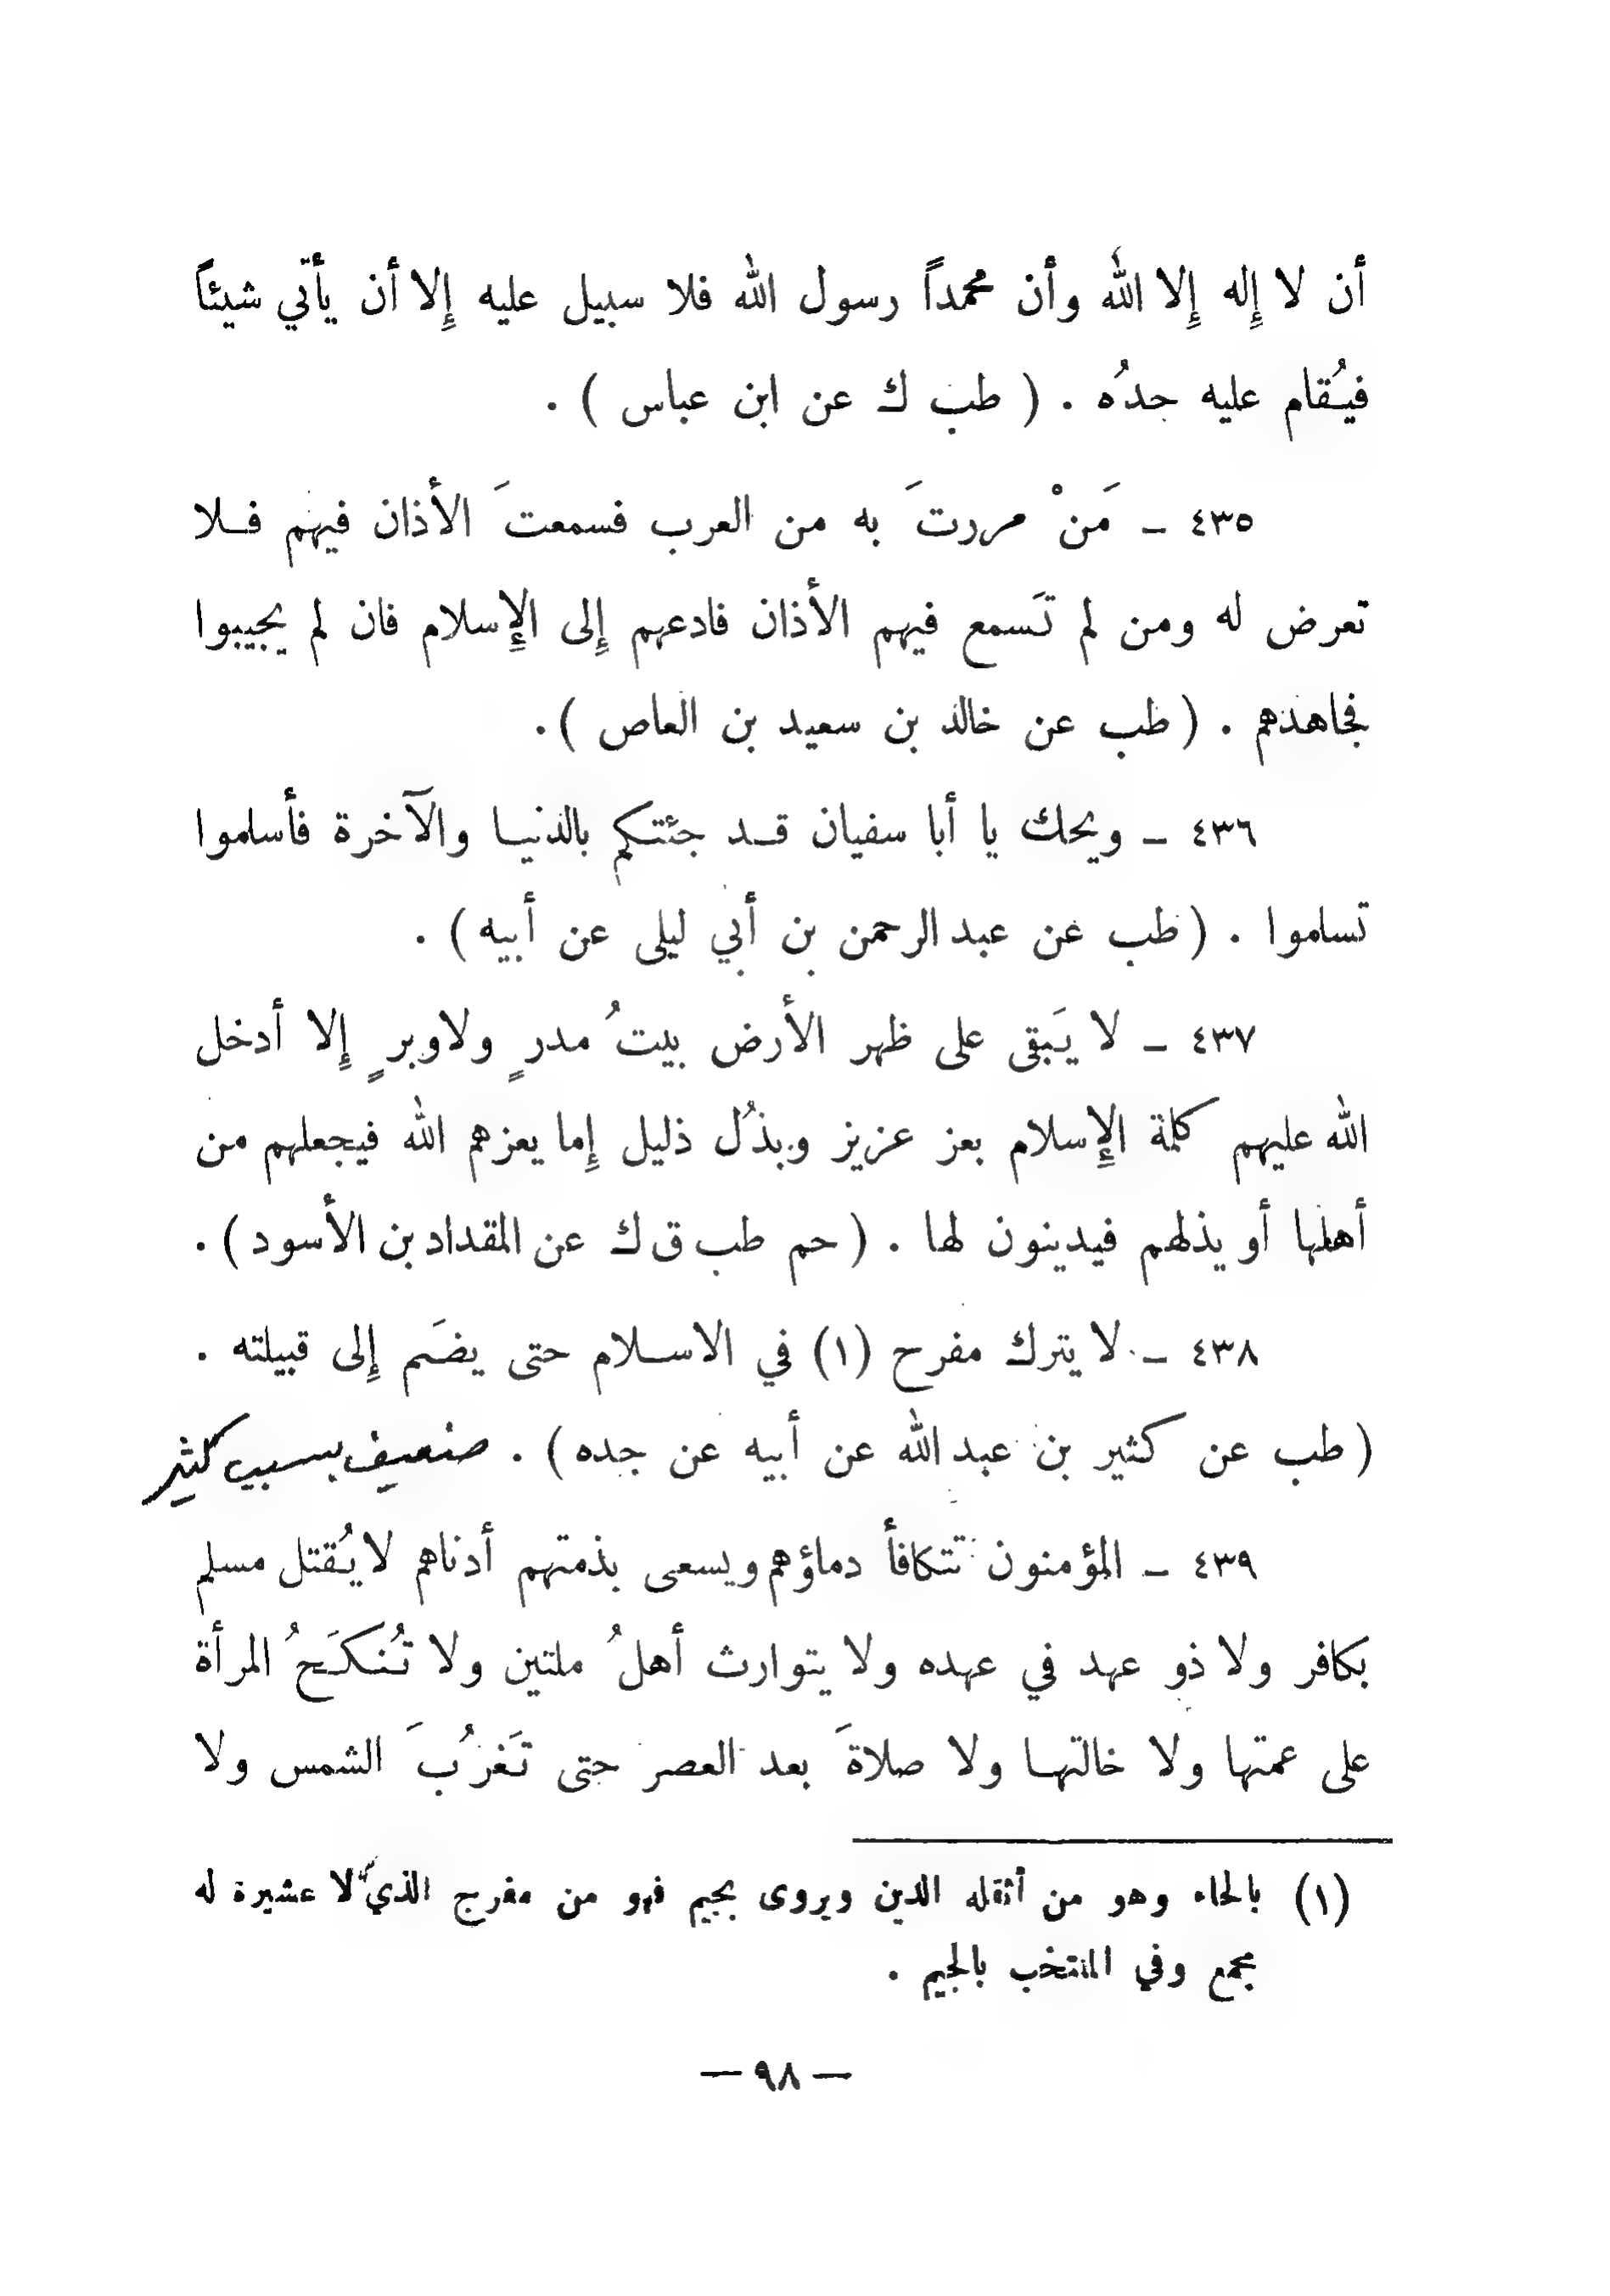 أن لا إِله إِلا الله وأن محمداً رسول الله فلا سبيل عليه إِلا أن يأتي شيئاً
فيُقام عليه حدُه . ( طب ك عن ابن عباس ) .
٤٣٥ – مَنْ مررتَ به من العرب فسمعتَ الأذان فيهم فلا
تعرض له ومن لم تَسمع فيهم الأذان فادعهم إِلى الإِسلام فان لم يجيبوا
فجاهدهم . ( طب عن خالد بن سعيد بن العاص ) .
٤٣٦ – ويحك يا أبا سفيان قد جئتكم بالدنيا والآخرة فأسلموا
تسلموا . ( طب عن عبد الرحمن بن أبي ليلى عن أبيه ) .
٤٣٧ – لا يَبقى على ظهر الأرض بيتُ مدرٍ ولا وبرٍ إِلا أدخل
الله عليهم كلمة الإِسلام بعز عزيز وبذُل ذليل إِما يعزهم الله فيجعلهم من
أهلها أو يذلهم فيدينون لها . ( حم طب ق ك عن المقداد بن الأسود ) .
٤٣٨ – لا يترك مفرح (١) في الاسلام حتى يضَم إِلى قبيلته .
( طب عن كثير بن عبد الله عن أبيه عن جده ) . ضعيف بسبب كثير
٤٣٩ – المؤمنون تتكافأ دماؤهم ويسعى بذمتهم أدناهم لا يُقتل مسلم
بكافر ولا ذو عهد في عهده ولا يتوارث أهلُ ملتين ولا تُنكَحُ المرأة
على عمتها ولا خالتها ولا صلاةَ بعد العصر حتى تَغرُبَ الشمس ولا
(١) بالحاء وهو من أثقله الدين ويروى بجيم فهو من مفرج الذي لا عشيرة له
مجمع وفي المنتخب بالجيم .
– ٩٨ –